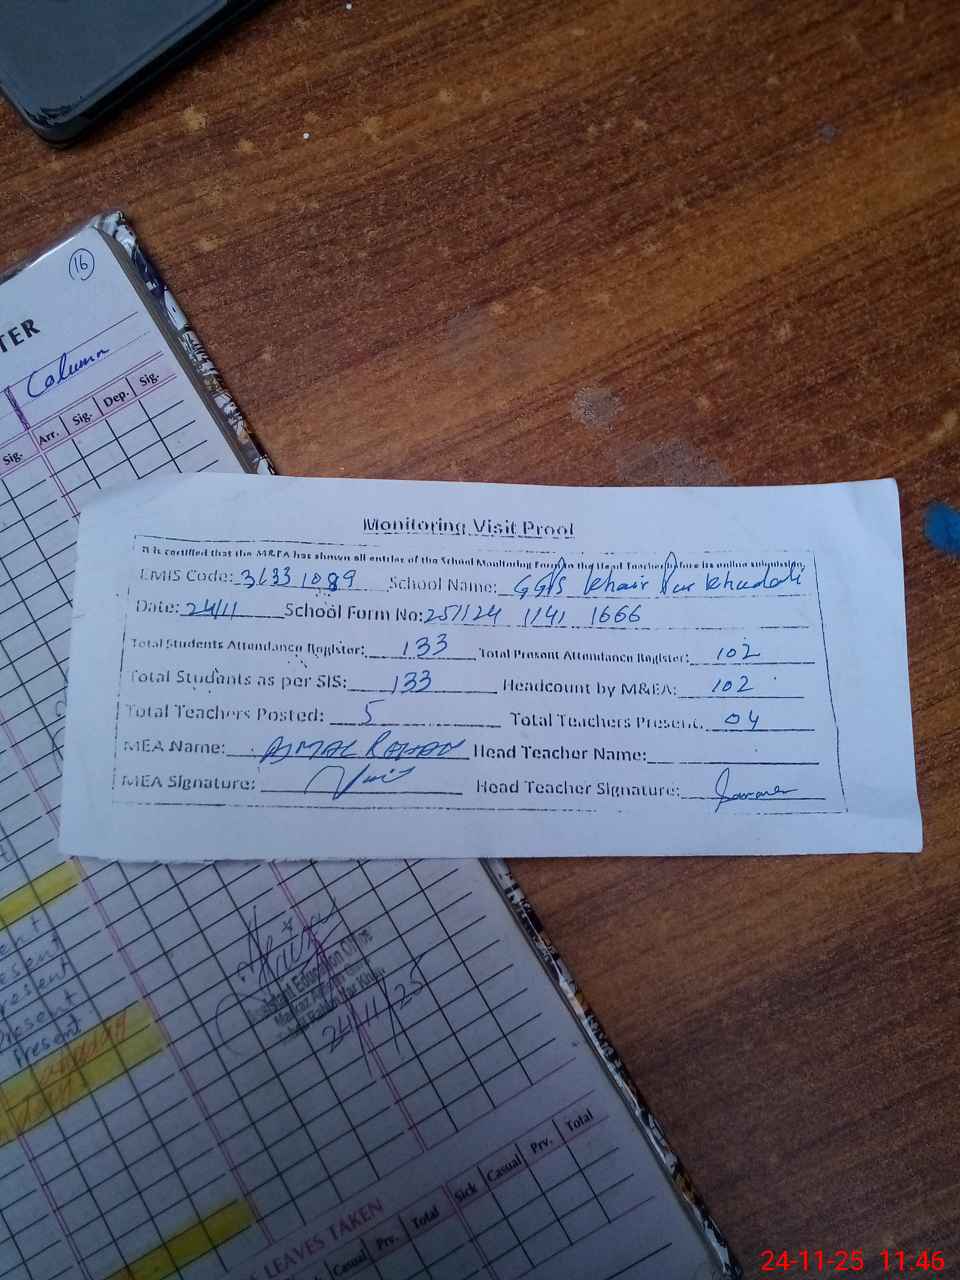 16
TER
Column
Sig. Arr. Sig. Dep. Sig.
Monitoring Visit Proof
It is certified that the M&EA has shown all entries of the School Monitoring Form to the Head Teacher before its online submission.
EMIS Code: 31331089 School Name: GGPS Khair Pur Khadali
Date: 24/11 School Form No: 251124 1141 1666
Total Students Attendance Register: 133 Total Present Attendance Register: 102
Total Students as per SIS: 133 Headcount by M&EA: 102
Total Teachers Posted: 5 Total Teachers Present: 04
MEA Name: AJMAL Head Teacher Name:
MEA Signature: Head Teacher Signature:
Present
Present
Present
Present
Assistant Education Officer
Markaz
24/11/25
LEAVES TAKEN
Casual Prv. Total Sick Casual Prv. Total
24-11-25 11:46